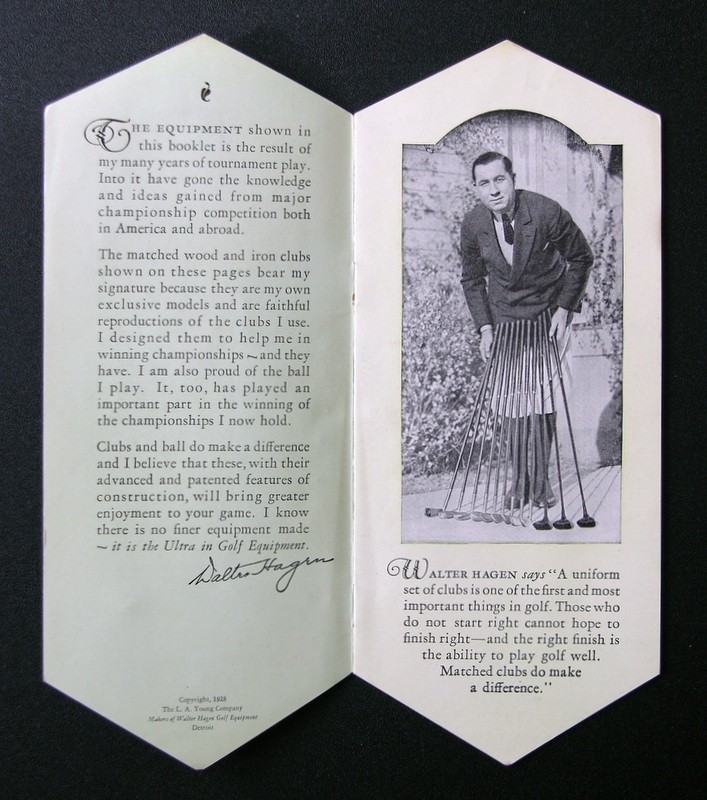 THE EQUIPMENT shown in
this booklet is the result of
my many years of tournament play.
Into it have gone the knowledge
and ideas gained from major
championship competition both
in America and abroad.
The matched wood and iron clubs
shown on these pages bear my
signature because they are my own
exclusive models and are faithful
reproductions of the clubs I use.
I designed them to help me in
winning championships ~ and they
have. I am also proud of the ball
I play. It, too, has played an
important part in the winning of
the championships I now hold.
Clubs and ball do make a difference
and I believe that these, with their
advanced and patented features of
construction, will bring greater
enjoyment to your game. I know
there is no finer equipment made
~ it is the Ultra in Golf Equipment.
Walter Hagen
Copyright, 1928
The L. A. Young Company
Makers of Walter Hagen Golf Equipment
Detroit
WALTER HAGEN says "A uniform
set of clubs is one of the first and most
important things in golf. Those who
do not start right cannot hope to
finish right—and the right finish is
the ability to play golf well.
Matched clubs do make
a difference."